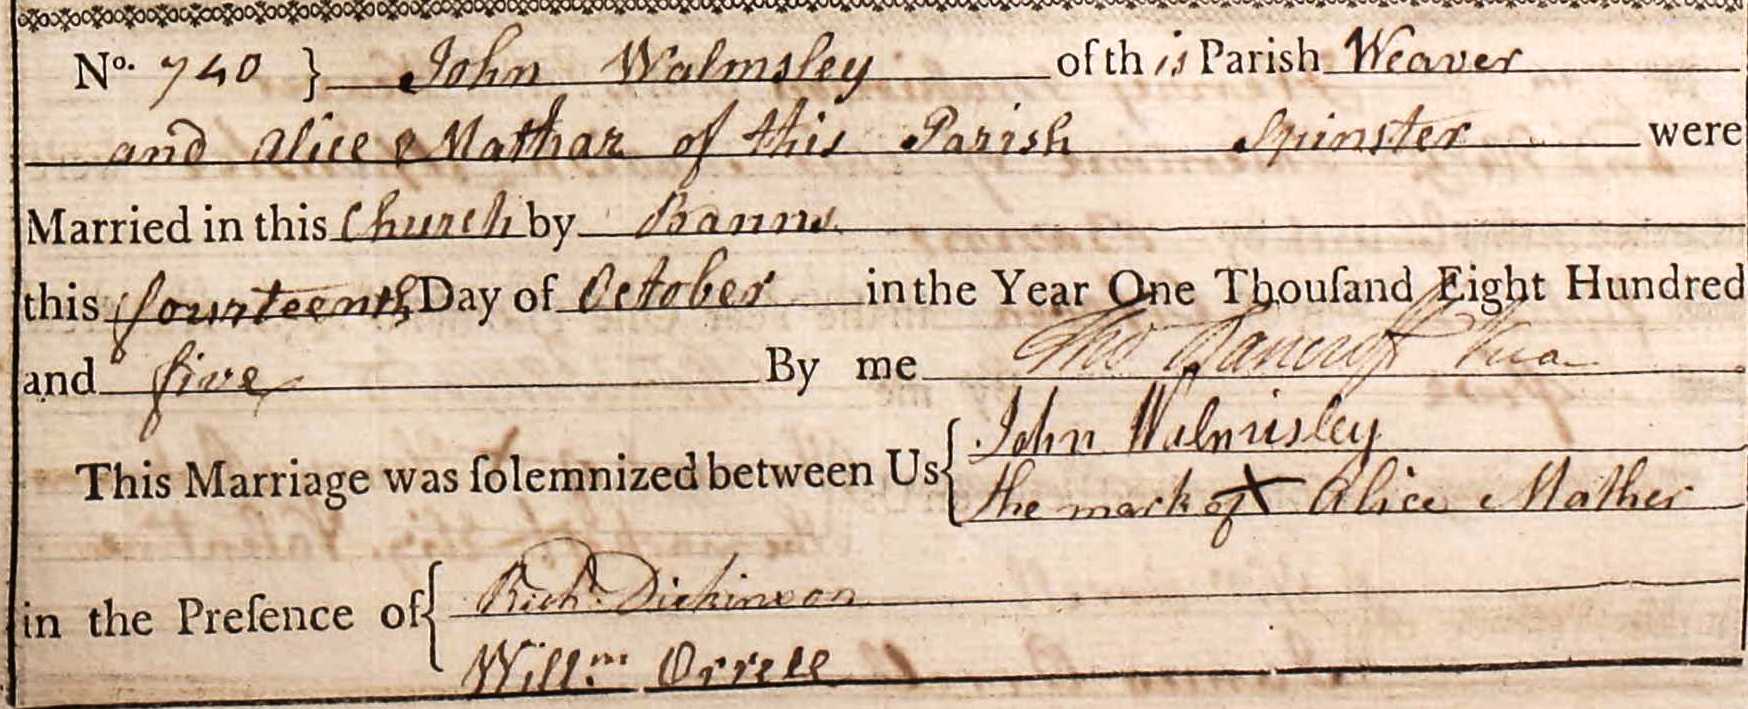 No. 740 } John Walmsley of this Parish Weaver
and Alice Mathar of this Parish Spinster were
Married in this Church by Banns
this fourteenth Day of October in the Year One Thouſand Eight Hundred
and five By me Thos Bancroft Vicar
This Marriage was ſolemnized between Us { John Walmsley
the mark of X Alice Mather
in the Preſence of { Richd. Dickinson
Willm. Orrell